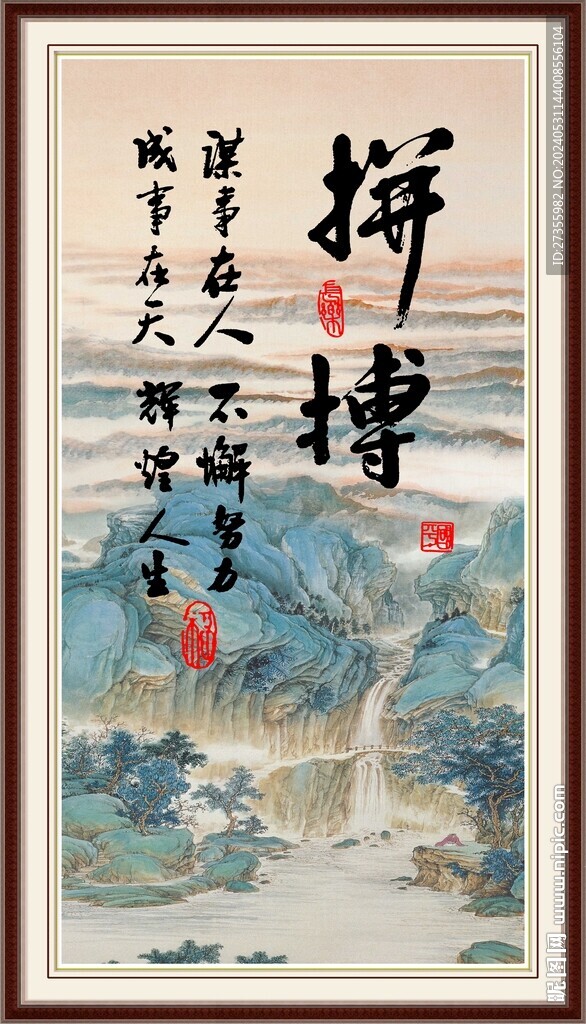 拼搏
谋事在人 不懈努力
成事在天 辉煌人生
长乐
ID:27355982 NO:20240531144008556104
昵图网 www.nipic.com